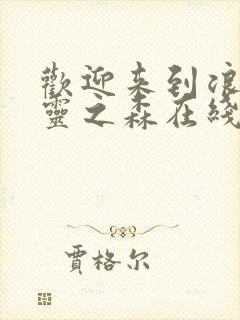 歡迎来到浪
靈之森在綫
賈格尔